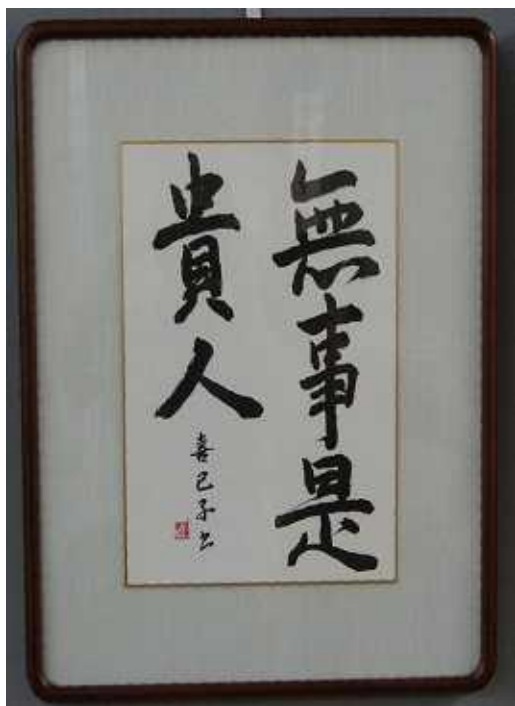 無事是
貴人
喜己子書